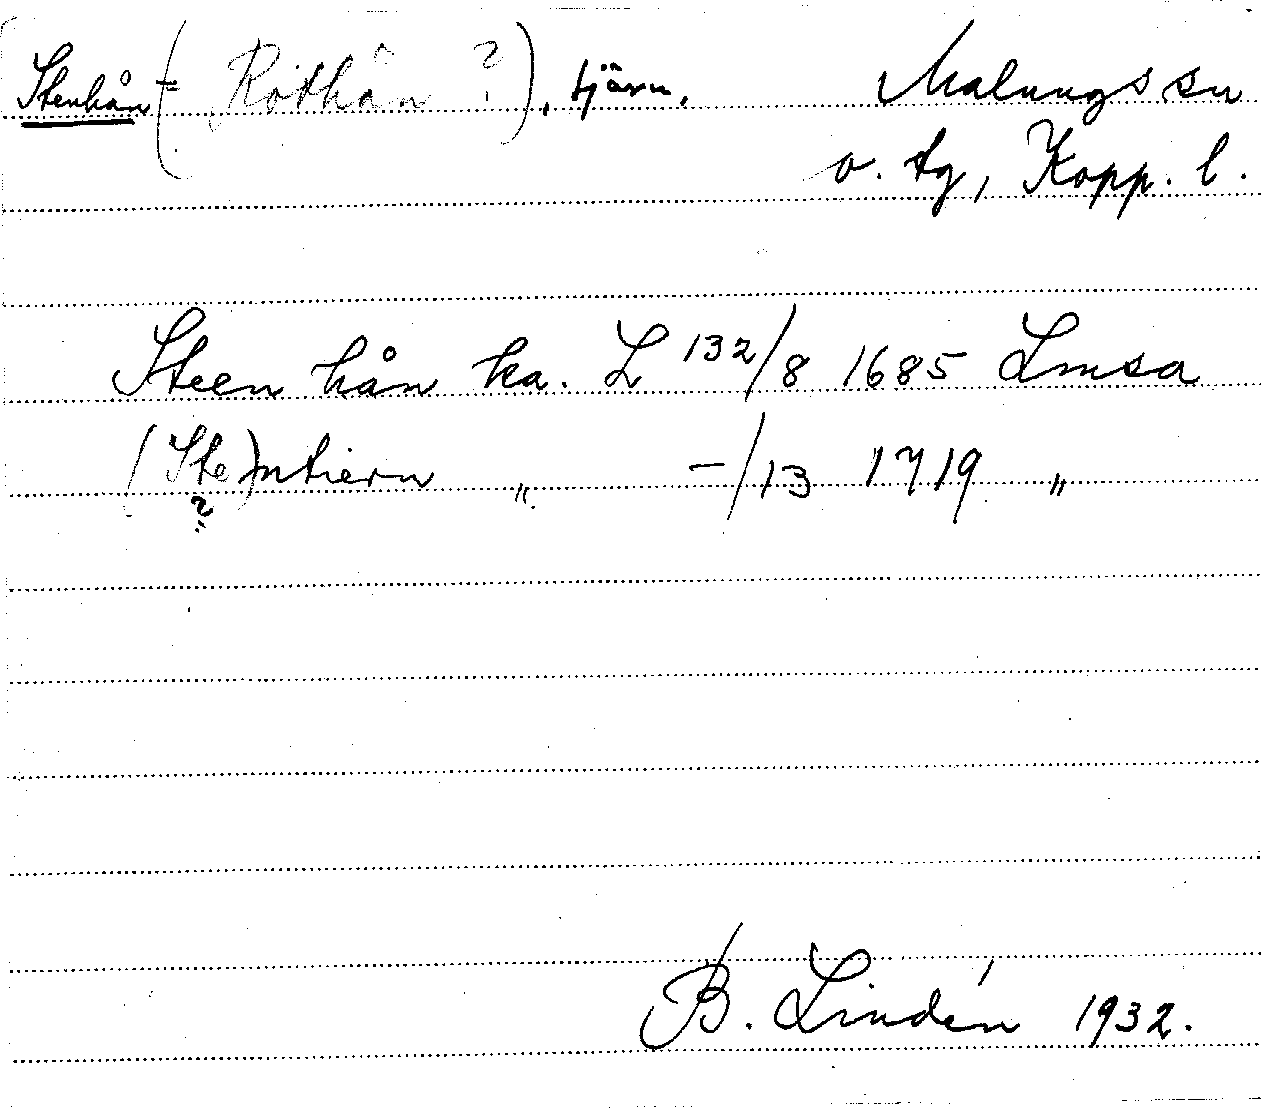 Stenhån (= Röthån ?), tjärn. Malungs sn
o. tg, Kopp. l.
Steen hån ka. L 132/8 1685 Lmsa
(Ste)ntiern " -/13 1719 "
?
B. Lindén 1932.